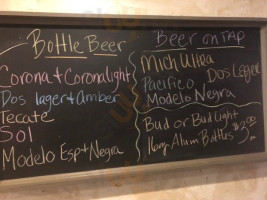 Bottle Beer
Corona + Coronalight
Dos lager + Amber
Tecate
Sol
Modelo Esp + Negra
Beer on TAP
Mich Ultra
Dos Leger
Pacifico
Modelo Negra
Bud or Bud Light
16oz Alum Bottles $3.00